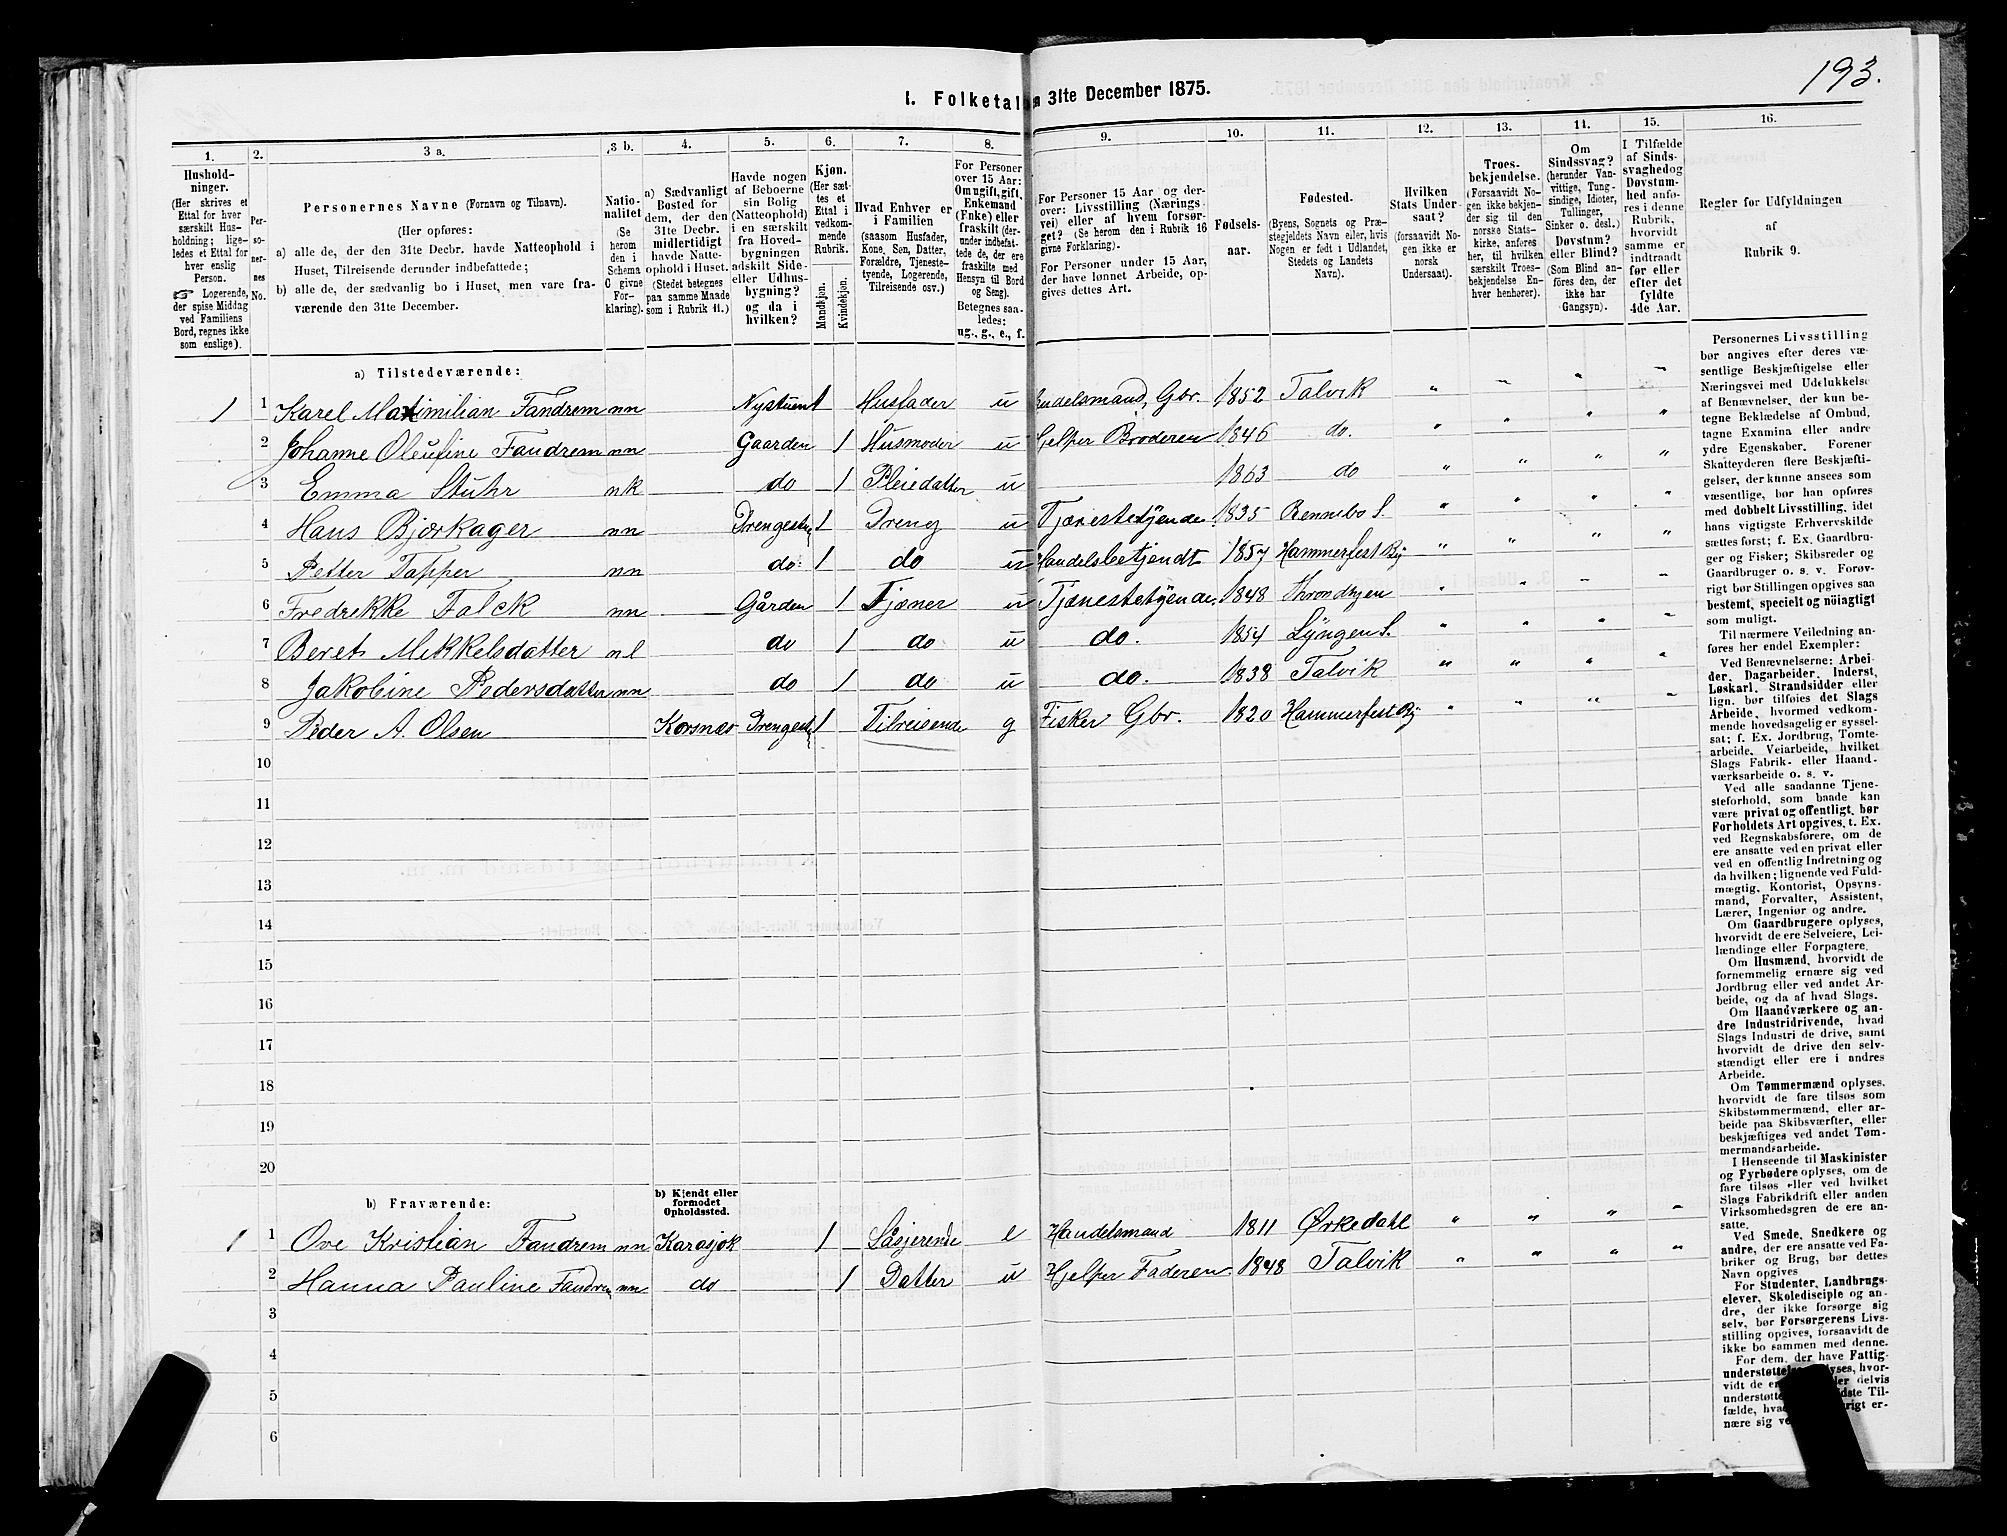 193.
I. Folketal 31te December 1875.
1. 2. 3 a. 3 b. 4. 5. 6. 7. 8. 9. 10. 11. 12. 13. 14. 15. 16.
Husholdninger. (Her skrives et Ettal for hver særskilt Husholdning; ligeledes et Ettal for hver enslig Person.
☞ Logerende, der spise Middag ved Familiens Bord, regnes ikke som enslige).
Personernes No.
Personernes Navne (Fornavn og Tilnavn).
(Her opføres:
a) alle de, der den 31te Decbr. havde Natteophold i Huset, Tilreisende derunder indbefattede;
b) alle de, der sædvanlig bo i Huset, men vare fraværende den 31te December.
Nationalitet (Se herom den i Schema C givne Forklaring).
a) Sædvanligt Bosted for dem, der den 31te Decbr. midlertidigt havde Natteophold i Huset. (Stedet betegnes paa samme Maade som i Rubrik 11.)
Havde nogen af Beboerne sin Bolig (Natteophold) i en særskilt fra Hovedbygningen adskilt Side- eller Udhusbygning? og da i hvilken?
Kjøn. (Her sættes et Ettal i vedkommende Rubrik.
Mandkjøn. Kvindekjøn.
Hvad Enhver er i Familien (saasom Husfader, Kone, Søn, Datter, Forældre, Tjenestetyende, Logerende, Tilreisende osv.)
For Personer over 15 Aar: Om ugift, gift, Enkemand (Enke) eller fraskilt (derunder indbefattede de, der ere fraskilte med Hensyn til Bord og Seng). Betegnes saaledes: ug., g., e., f.
For Personer 15 Aar og derover: Livsstilling (Næringsvei) eller af hvem forsørget? (Se herom den i Rubrik 16 givne Forklaring).
For Personer under 15 Aar, der have lønnet Arbeide, opgives dettes Art.
Fødselsaar.
Fødested. (Byens, Sognets og Præstegjeldets Navn eller, hvis Nogen er født i Udlandet, Stedets og Landets Navn).
Hvilken Stats Undersaat? (forsaavidt Nogen ikke er norsk Undersaat).
Troesbekjendelse. (Forsaavidt Nogen ikke bekjender sig til den norske Statskirke, anføres her, til hvilken særskilt Troesbekjendelse Enhver henhører).
Om Sindssvag? (herunder Vanvittige, Tungsindige, Idioter, Tullinger, Sinker o. desl.) Døvstum? eller Blind? (Som Blind anføres den, der ikke har Gangsyn).
I Tilfælde af Sindssvaghed og Døvstumhed anføres i denne Rubrik, hvorvidt samme er indtraadt før eller efter det fyldte 4de Aar.
Regler for Udfyldningen af Rubrik 9.
a) Tilstedeværende:
1 1 Karel Maximilian Fandrem nn Nystuen 1 Husfader u Handelsmand, Gbr. 1852 Talvik " " " "
2 Johanne Oleufine Fandrem nn Gaarden 1 Husmoder u Hjelper Broderen 1846 do. " " " "
3 Emma Stuhr nk do 1 Pleiedatter u 1863 do " " " "
4 Hans Bjørkager nn Drengestu 1 Dreng u Tjenestetyende 1835 Rennebo S. " " " "
5 Petter Tapper nn do: 1 do u Handelsbetjendt 1857 Hammerfest By " " " "
6 Fredrekke Falck nn Gården 1 Tjener u Tjenestetyende. 1848 Throndhjem " " " "
7 Beret Mikkelsdatter nl do 1 do u do. 1854 Lyngen S. " " " "
8 Jakobine Pedersdatter nn do 1 do u do. 1838 Talvik " " " "
9 Peder A. Olsen Korsnæs Drengest 1 Tilreisende g Fisker Gbr. 1820 Hammerfest By " " " "
10
11
12
13
14
15
16
17
18
19
20
b) Fraværende: b) Kjendt eller formodet Opholdssted.
1 1 Ove Kristian Fandrem nn Karasjok 1 Losjerende e Handelsmand 1811 Ørkedahl " " " "
2 Hanna Pauline Fandrem nn do 1 Datter u Hjelper Faderen 1848 Talvik " " " "
3
4
5
6
Personernes Livsstilling
bør angives efter deres væsentlige
Beskjæftigelse eller
Næringsvei med Udelukkelse
af Benævnelser, der kun betegne
Beklædelse af Ombud,
tagne Examina eller andre
ydre Egenskaber. Forener
Skatteyderen flere Beskjæftigelser,
der kunne ansees som
væsentlige, bør han opføres
med dobbelt Livsstilling, idet
hans vigtigste Erhvervskilde
sættes først; f. Ex. Gaardbruger
og Fisker; Skibsreder og
Gaardbruger o. s. v. Forøvrigt
bør Stillingen opgives saa
bestemt, specielt og nöiagtigt
som muligt.
Til nærmere Veiledning anføres
her endel Exempler:
Ved Benævnelserne: Arbeider,
Dagarbeider, Inderst,
Løskarl, Strandsidder eller
lign. bør tilføies det Slags
Arbeide, hvormed vedkommende
hovedsagelig er sysselsat;
f. Ex. Jordbrug, Tomtearbeide,
Veiarbeide, hvilket
Slags Fabrik- eller Haandværksarbeide
o. s. v.
Ved alle saadanne Tjenesteforhold,
som baade kan
være privat og offentligt, bør
Forholdets Art opgives, t. Ex.
ved Regnskabsførere, om de
ere ansatte ved en privat eller
ved en offentlig Indretning og
da hvilken; lignende ved Fuldmægtig,
Kontorist, Opsynsmand,
Forvalter, Assistent,
Lærer, Ingeniør og andre.
Om Gaardbrugere oplyses,
hvorvidt de ere Selveiere, Leilændinge
eller Forpagtere.
Om Husmænd, hvorvidt de
fornemmelig ernære sig ved
Jordbrug eller ved andet Arbeide,
og da af hvad Slags.
Om Haandværkere og andre
Industridrivende, hvad
Slags Industri de drive, samt
hvorvidt de drive den selvstændigt
eller ere i andres
Arbeide.
Om Tømmermænd oplyses,
hvorvidt de fare tilsøs som
Skibstømmermænd, eller arbeide
paa Skibsværfter, eller
beskjæftiges ved andet Tømmermandsarbeide.
I Henseende til Maskinister
og Fyrbødere oplyses, om de
fare tilsøs eller ved hvilket
Slags Fabrikdrift eller anden
Virksomhedsgren de ere ansatte.
Ved Smede, Snedkere og
andre, der ere ansatte ved Fabriker
og Brug, bør dettes
Navn opgives
For Studenter, Landbrugselever,
Skoledisciple og andre,
der ikke forsørge sig
selv, bør Forsørgerens Livsstilling
opgives, forsaavidt de
ikke bo sammen med denne.
For dem, der have Fattigunderstøttelse